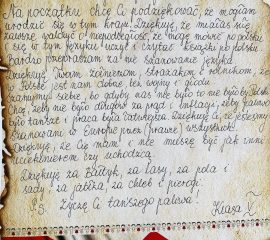 Na początku chcę Ci podziękować, że mogłam
urodzić się w tym kraju. Dziękuję, że miałaś siłę
zawsze walczyć o niepodległość, że mogę mówić po polsku
się w tym języku uczyć i czytać książki po polsku.
Bardzo przepraszam za nie szanowanie języka.
Dziękuję Twoim żołnierzom, strażakom i rolnikom, że
w Polsce jest nam dobrze, bez wojny i głodu.
szanujmy siebie, bo gdyby nas nie było to nie było by Polski
Chcę, żeby nie było długów za prąd i inflacji, żeby
było tańsze i praca była łatwiejsza. Dziękuję Ci, że jesteśmy
szanowani w Europie przez (prawie) wszystkich!
Dziękuję, że Cię mam i nie muszę być jak inni
uciekinierem czy uchodźcą.
Dziękuję za Bałtyk, za lasy, za pola i
sady, za jabłka, za chleb i pierogi.
P.S. Życzę Ci tańszego paliwa!
Klasa V